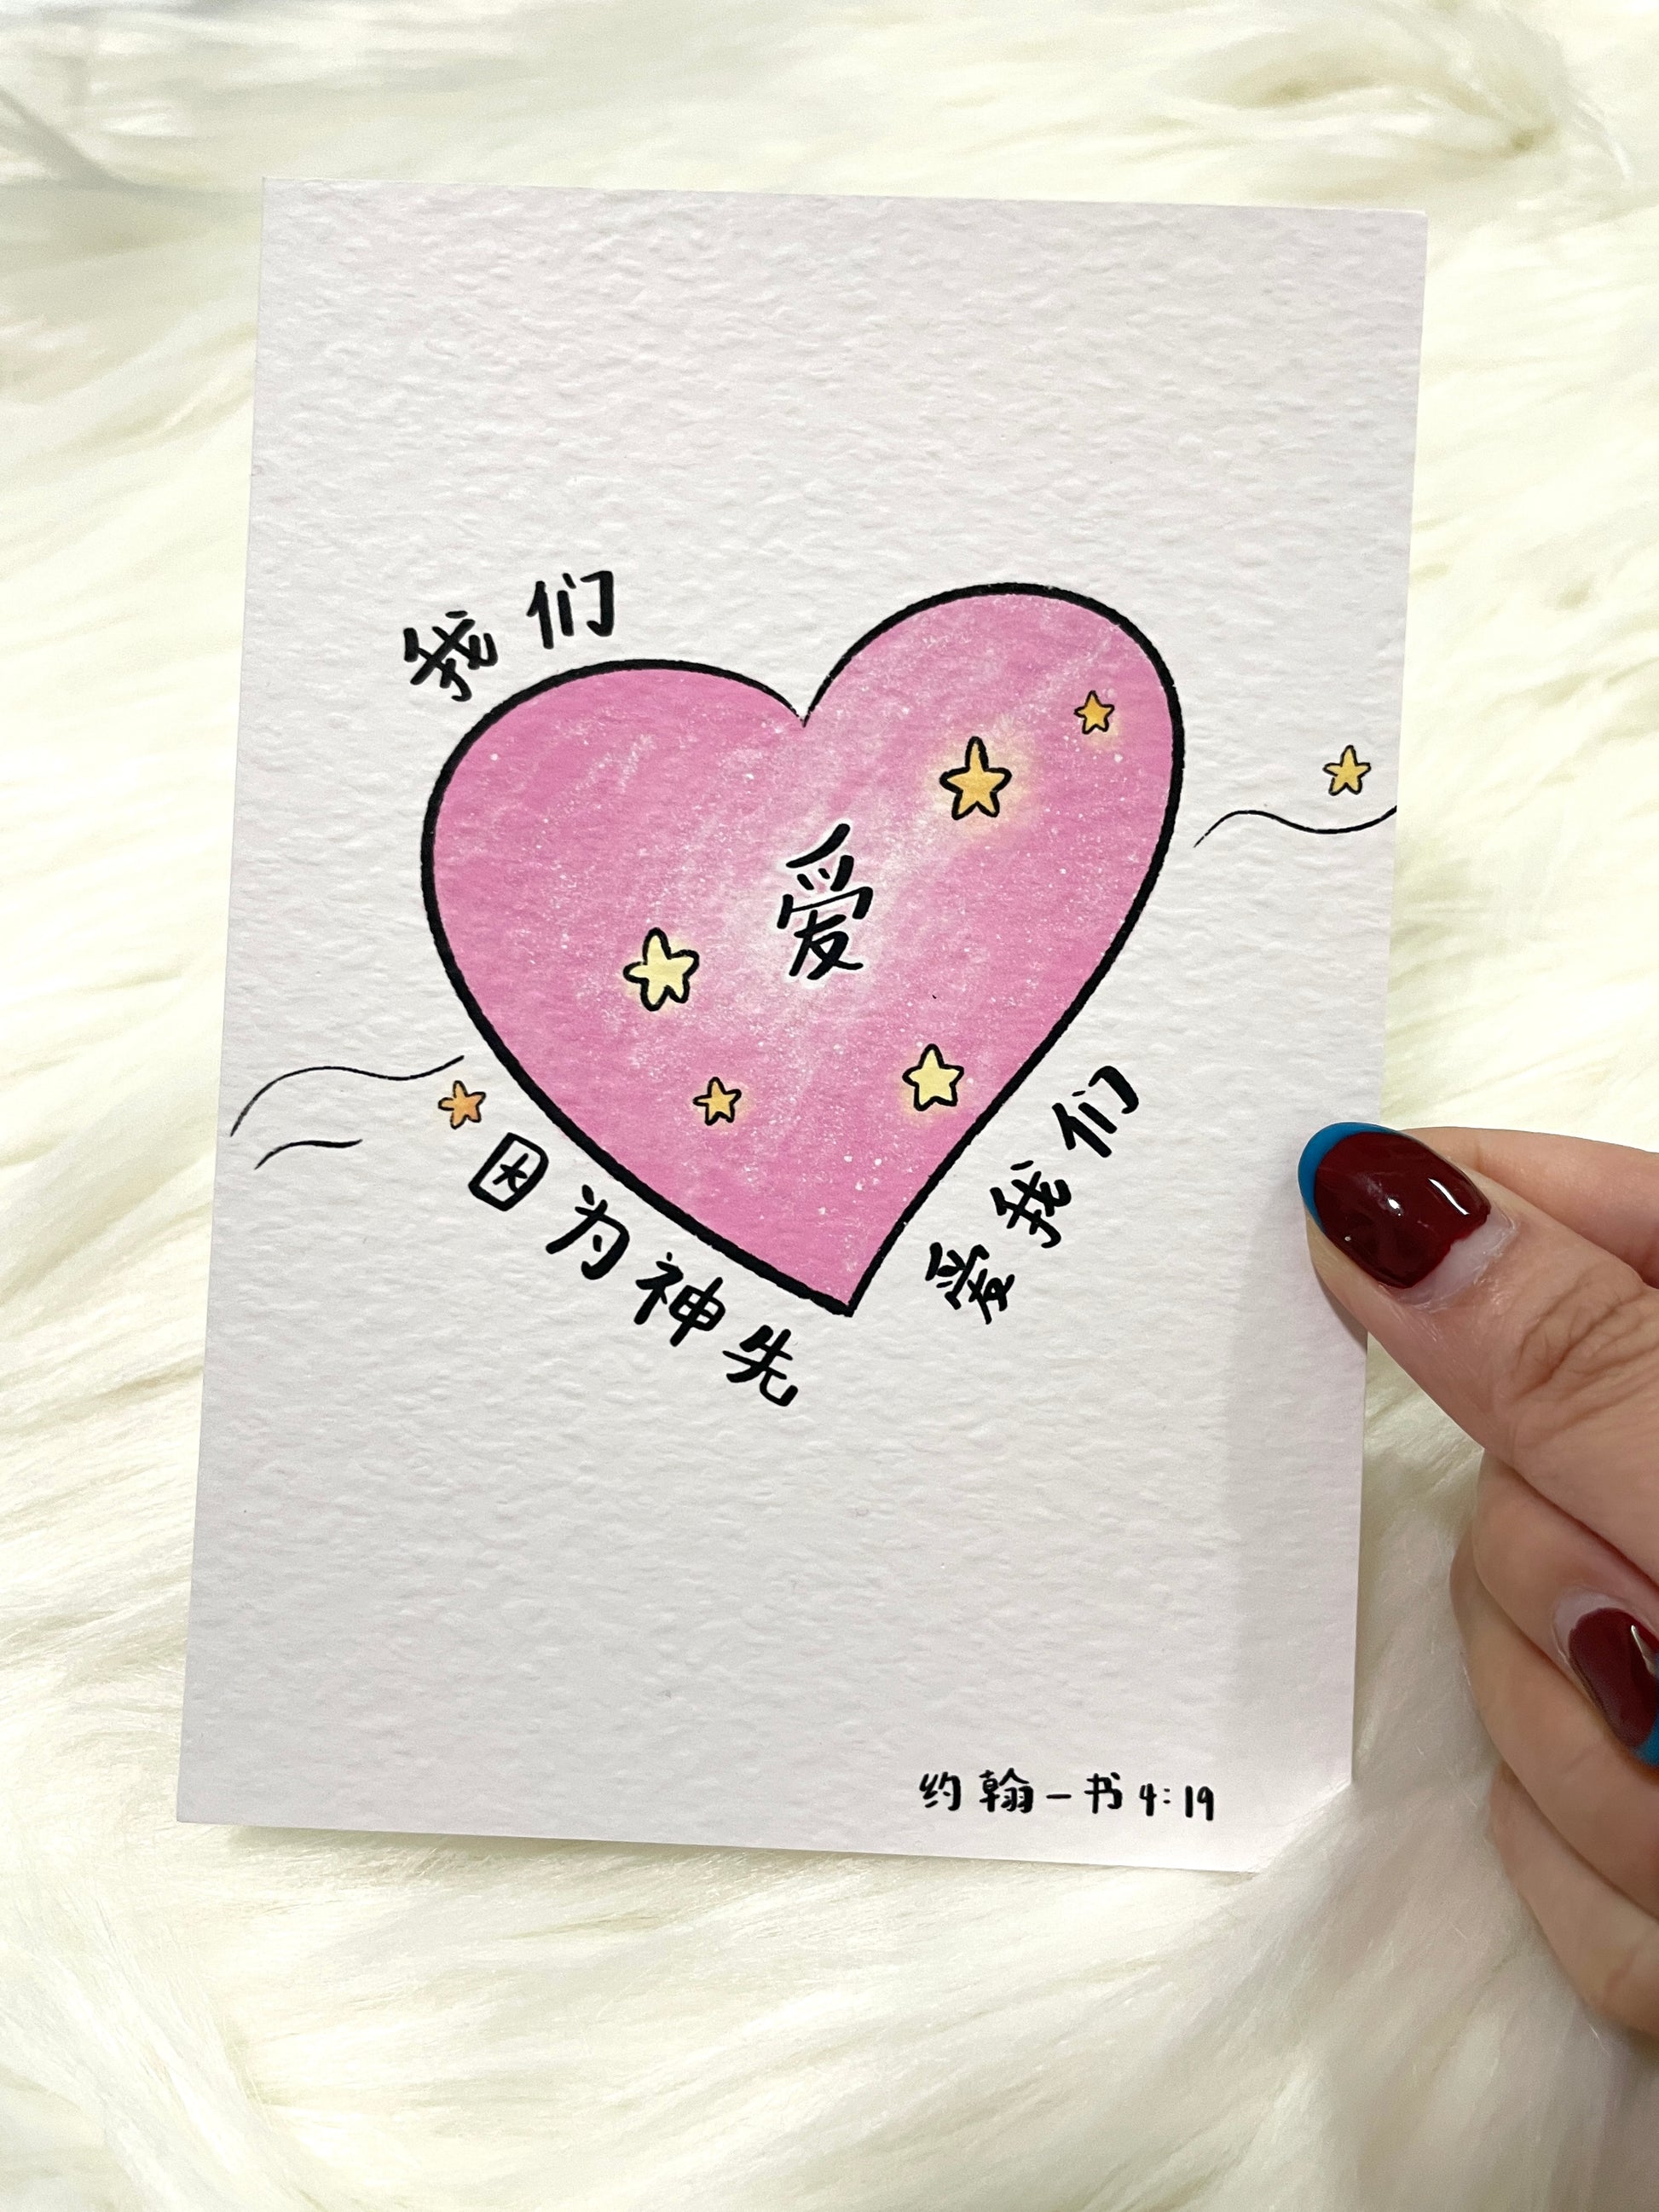 我们
爱
因为神先
爱我们
约翰一书4:19